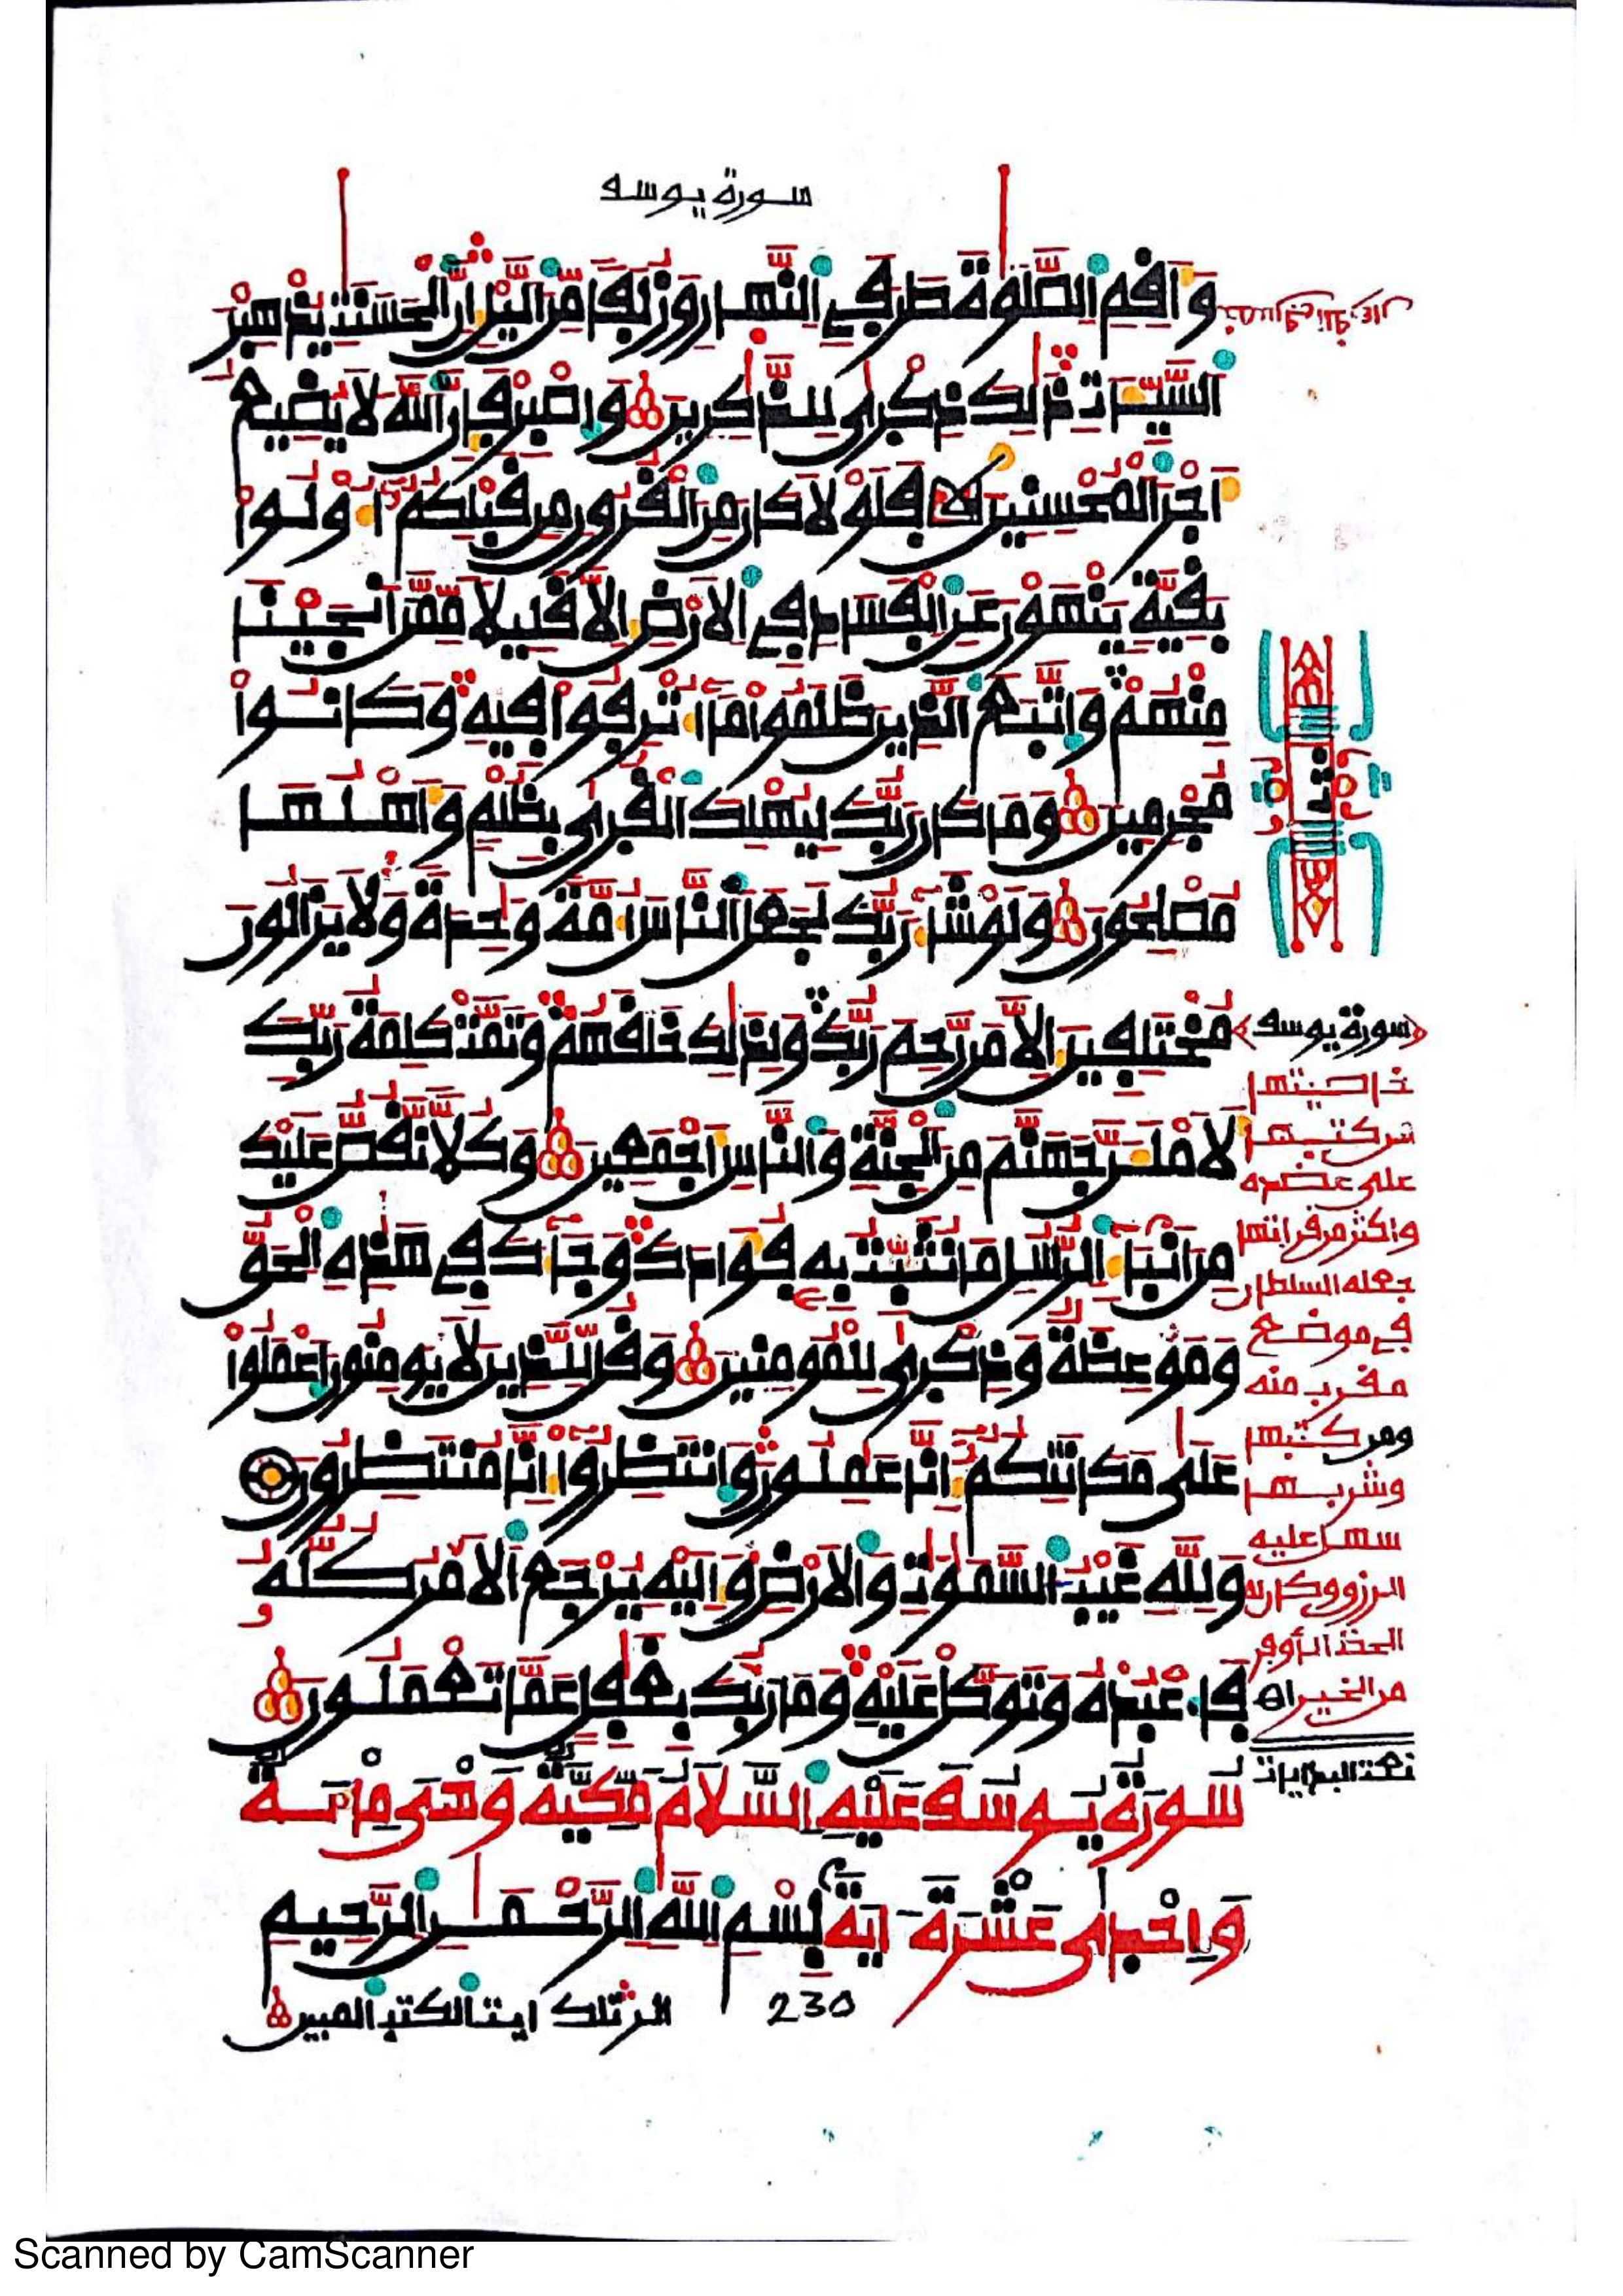 سورة يوسف
وَأَقِمِ الصَّلَوٰةَ طَرَفَيِ النَّهَارِ وَزُلَفًا مِّنَ الَيْلِ إِنَّ الْحَسَنَٰتِ يُذْهِبْنَ
السَّيِّـَٔاتِ ذَٰلِكَ ذِكْرَىٰ لِلذَّٰكِرِينَ وَاصْبِرْ فَإِنَّ اللَّهَ لَا يُضِيعُ
أَجْرَ الْمُحْسِنِينَ فَلَوْلَا كَانَ مِنَ الْقُرُونِ مِن قَبْلِكُمُۥٓ أُوْلُواْ
بَقِيَّةٍ يَنْهَوْنَ عَنِ الْفَسَادِ فِي الْأَرْضِ إِلَّا قَلِيلًا مِّمَّنْ أَنجَيْنَا
مِنْهُمْ وَاتَّبَعَ الَّذِينَ ظَلَمُواْ مَآ أُتْرِفُواْ فِيهِ وَكَانُواْ
مُجْرِمِينَ وَمَا كَانَ رَبُّكَ لِيُهْلِكَ الْقُرَىٰ بِظُلْمٍ وَأَهْلُهَا
مُصْلِحُونَ وَلَوْ شَآءَ رَبُّكَ لَجَعَلَ النَّاسَ أُمَّةً وَٰحِدَةً وَلَا يَزَالُونَ
مُخْتَلِفِينَ إِلَّا مَن رَّحِمَ رَبُّكَ وَلِذَٰلِكَ خَلَقَهُمْ وَتَمَّتْ كَلِمَةُ رَبِّكَ
لَأَمْلَأَنَّ جَهَنَّمَ مِنَ الْجِنَّةِ وَالنَّاسِ أَجْمَعِينَ وَكُلًّا نَّقُصُّ عَلَيْكَ
مِنْ أَنۢبَآءِ الرُّسُلِ مَا نُثَبِّتُ بِهِۦ فُؤَادَكَ وَجَآءَكَ فِي هَٰذِهِ الْحَقُّ
وَمَوْعِظَةٌ وَذِكْرَىٰ لِلْمُومِنِينَ وَقُل لِّلَّذِينَ لَا يُومِنُونَ اعْمَلُواْ
عَلَىٰ مَكَانَتِكُمُۥٓ إِنَّا عَٰمِلُونَ وَانتَظِرُوٓاْ إِنَّا مُنتَظِرُونَ
وَلِلَّهِ غَيْبُ السَّمَٰوَٰتِ وَالْأَرْضِ وَإِلَيْهِ يُرْجَعُ الْأَمْرُ كُلُّهُۥ
فَاعْبُدْهُ وَتَوَكَّلْ عَلَيْهِ وَمَا رَبُّكَ بِغَٰفِلٍ عَمَّا تَعْمَلُونَ
سُورَةُ يُوسُفَ عَلَيْهِ السَّلَامُ مَكِّيَّةٌ وَهْيَ مِائَةٌ
وَإِحْدَىٰ عَشْرَةَ ءَايَةً بِسْمِ اللَّهِ الرَّحْمَٰنِ الرَّحِيمِ
الر تلك ايت الكتب المبين
230
ثمن
سورة يوسف
خاصيتها
من كتبها
على عضده
واكثر من قراءتها
جعله السلطان
في موضع
مقرب منه
ومن كتبها
وشربها
سهل عليه
الرزق وكان له
الحظ الأوفر
من الخير اه
Scanned by CamScanner